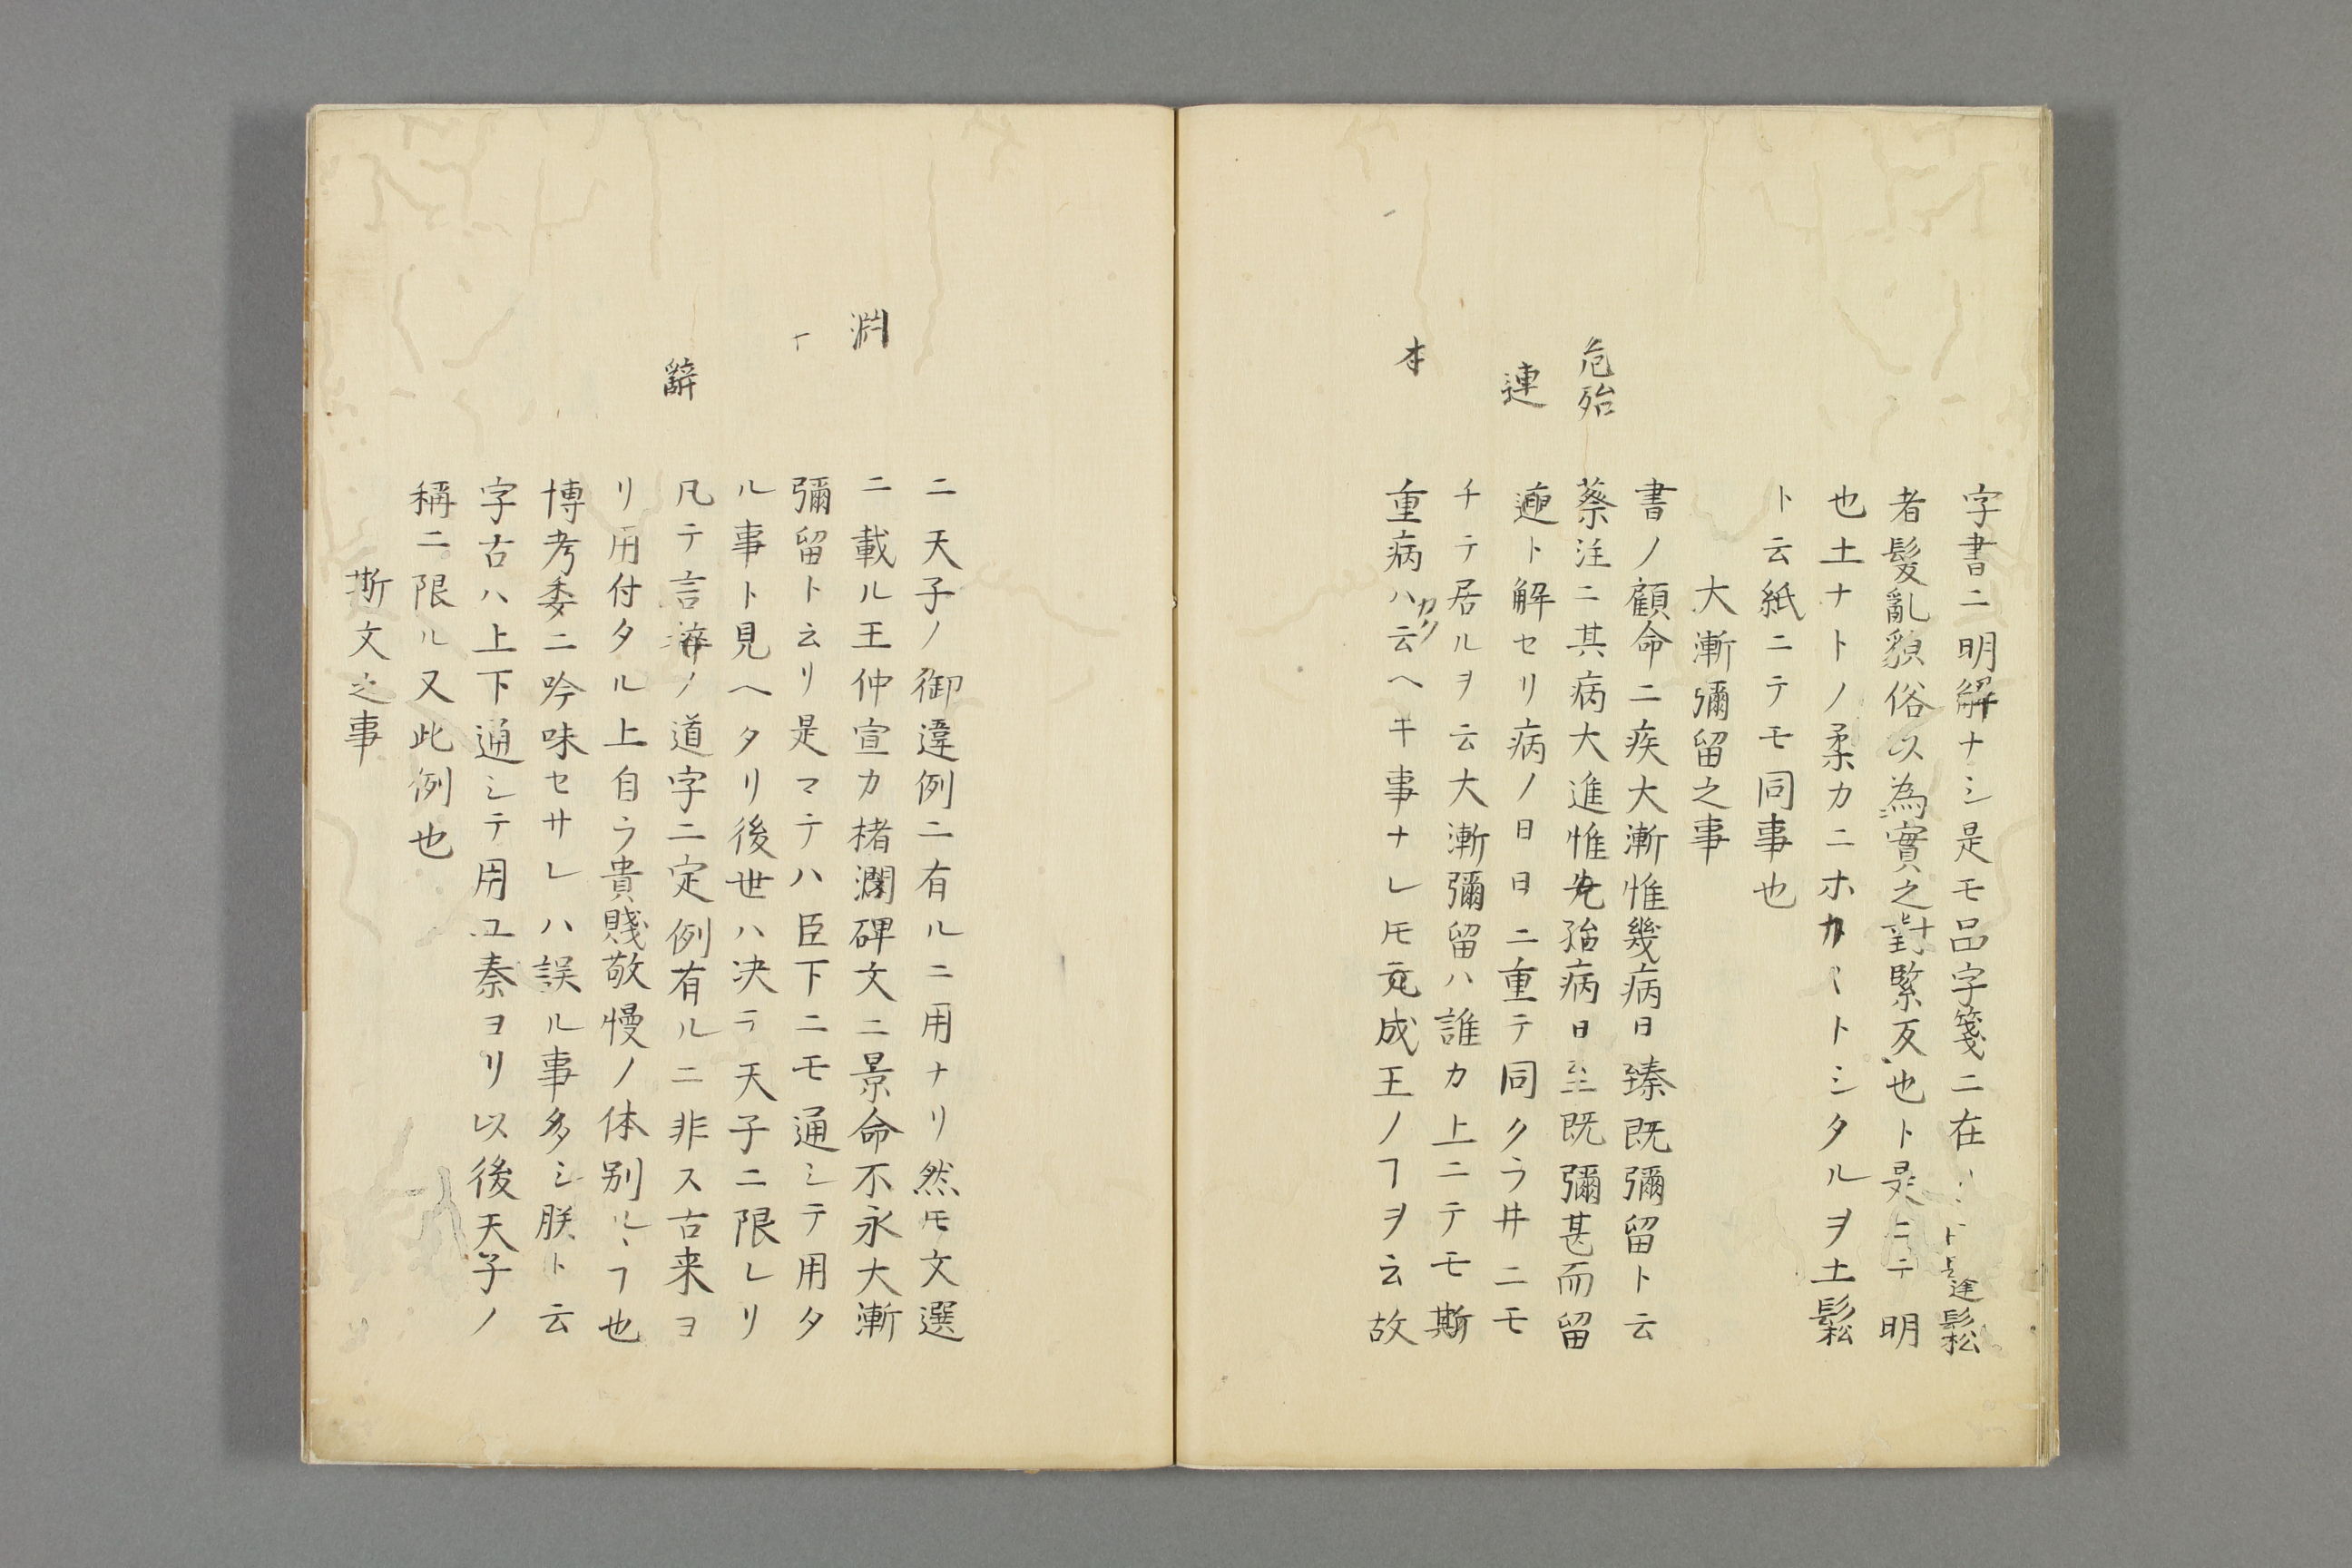 字書ニ明解ナシ是モ品字箋ニ在ト是途鬆
者髮亂貌俗以為實之對緊反也ト是ニテ明
也土ナトノ柔カニホカ〱トシタルヲ土鬆
ト云紙ニテモ同事也
大漸彌留之事
書ノ顧命ニ疾大漸惟幾病日臻既彌留ト云
危殆
蔡注ニ其病大進惟危殆病日至既彌甚而留
連
連ト解セリ病ノ日日ニ重テ同クラ井ニモ
チテ居ルヲ云大漸彌留ハ誰カ上ニテモ斯
本
重病ハ云ヘキ事ナレ𪜈元成王ノヿヲ云故
カク
ニ天子ノ御違例ニ有ルニ用ナリ然𪜈文選
渕
ニ載ル王仲宣カ楮淵碑文ニ景命不永大漸
彌留ト云リ是マテハ臣下ニモ通シテ用タ
ル事ト見ヘタリ後世ハ決ラ天子ニ限レリ
辭
凡テ言ノ道字ニ定例有ルニ非ス古来ヨ
リ用付タル上自ラ貴賤敬慢ノ体別ルヽヿ也
博考委ニ吟味セサレハ誤ル事多シ朕ト云
字古ハ上下通シテ用ユ秦ヨリ以後天子ノ
稱ニ限ル又此例也
斯文之事